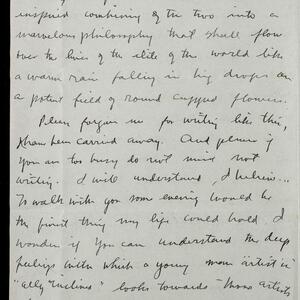 inspired combining of the two into a
marvelous philosophy that shall flow
over the lives of the elite of the world like
a warm rain falling in big drops on
a potent field of round cupped flowers.
Please forgive me for writing like this,
I have been carried away. And please if
you are too busy do not mind not
writing. I will understand, I believe...
To walk with you some evening would be
the finest thing my life could hold. I
wonder if you can understand the deep
feelings with which a young man "artist
ally inclined" looks towards those artists